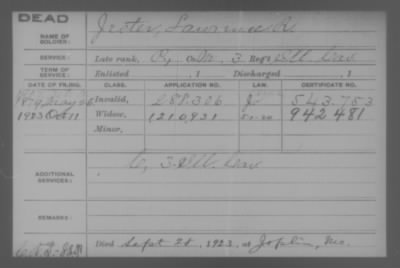 DEAD
NAME OF SOLDIER: Jeter, Lawrence R.
SERVICE: Late rank, Co. M, 3 Reg't Ill Cav
TERM OF SERVICE: Enlisted , 1 Discharged , 1
DATE OF FILING. CLASS. APPLICATION NO. LAW. CERTIFICATE NO.
Invalid, 288.306 543.753
1923 Oct 11 Widow, 1210,931 942 481
Minor,
ADDITIONAL SERVICES: C, 3 Ill. Cav
REMARKS:
Died Sept 28, 1923, at Joplin, Mo.